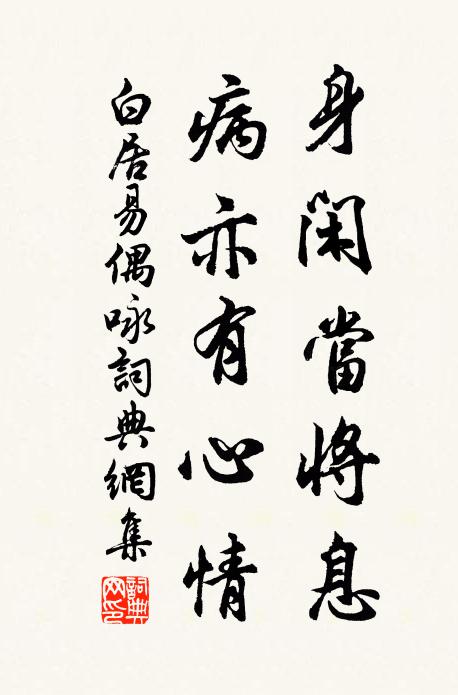 身閑當將息
病亦有心情
白居易偶咏詞典網集
詞典網印